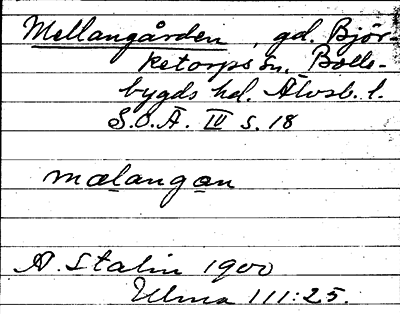 Mellangården, gd. Björ-
ketorps sn. Bolle-
bygds hd. Älvsb. l.
S.O.Ä. IV s. 18
mælangan
A. Stalin 1900
Ulma 111:25.